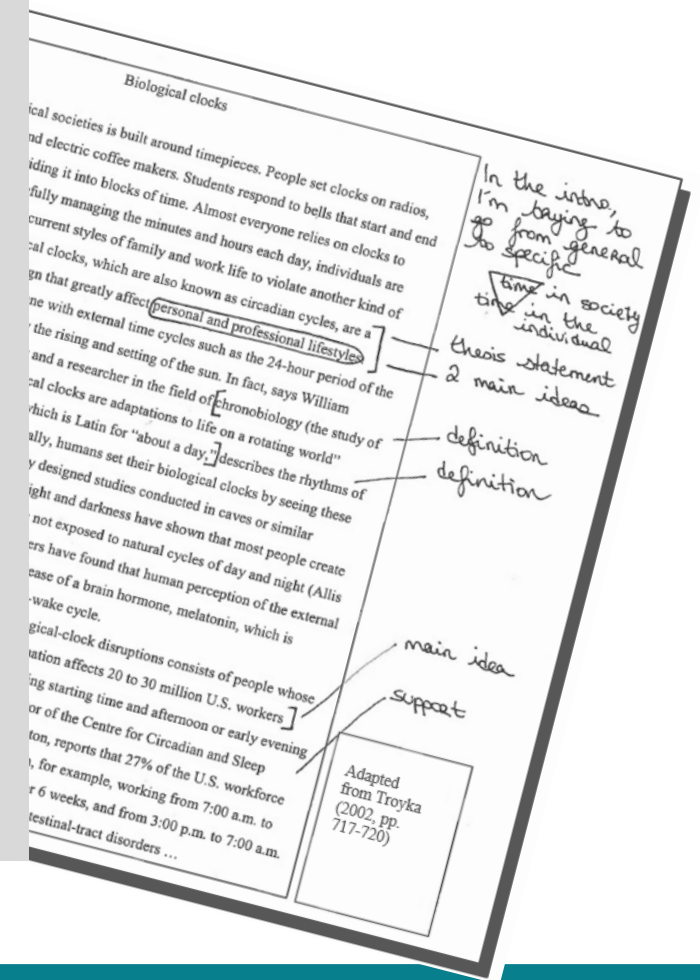 Biological clocks
ical societies is built around timepieces. People set clocks on radios,
nd electric coffee makers. Students respond to bells that start and end
iding it into blocks of time. Almost everyone relies on clocks to
fully managing the minutes and hours each day, individuals are
current styles of family and work life to violate another kind of
cal clocks, which are also known as circadian cycles, are a
gn that greatly affect personal and professional lifestyles
ne with external time cycles such as the 24-hour period of the
the rising and setting of the sun. In fact, says William
and a researcher in the field of chronobiology (the study of
cal clocks are adaptations to life on a rotating world”
which is Latin for “about a day,” describes the rhythms of
ally, humans set their biological clocks by seeing these
y designed studies conducted in caves or similar
ight and darkness have shown that most people create
not exposed to natural cycles of day and night (Allis
ers have found that human perception of the external
ease of a brain hormone, melatonin, which is
-wake cycle.
gical-clock disruptions consists of people whose
ation affects 20 to 30 million U.S. workers
ing starting time and afternoon or early evening
or of the Centre for Circadian and Sleep
ton, reports that 27% of the U.S. workforce
, for example, working from 7:00 a.m. to
r 6 weeks, and from 3:00 p.m. to 7:00 a.m.
testinal-tract disorders …
In the intro,
I'm trying to
go from general
to specific
time in society
time in the
individual
thesis statement
2 main ideas
definition
definition
main idea
support
Adapted
from Troyka
(2002, pp.
717-720)